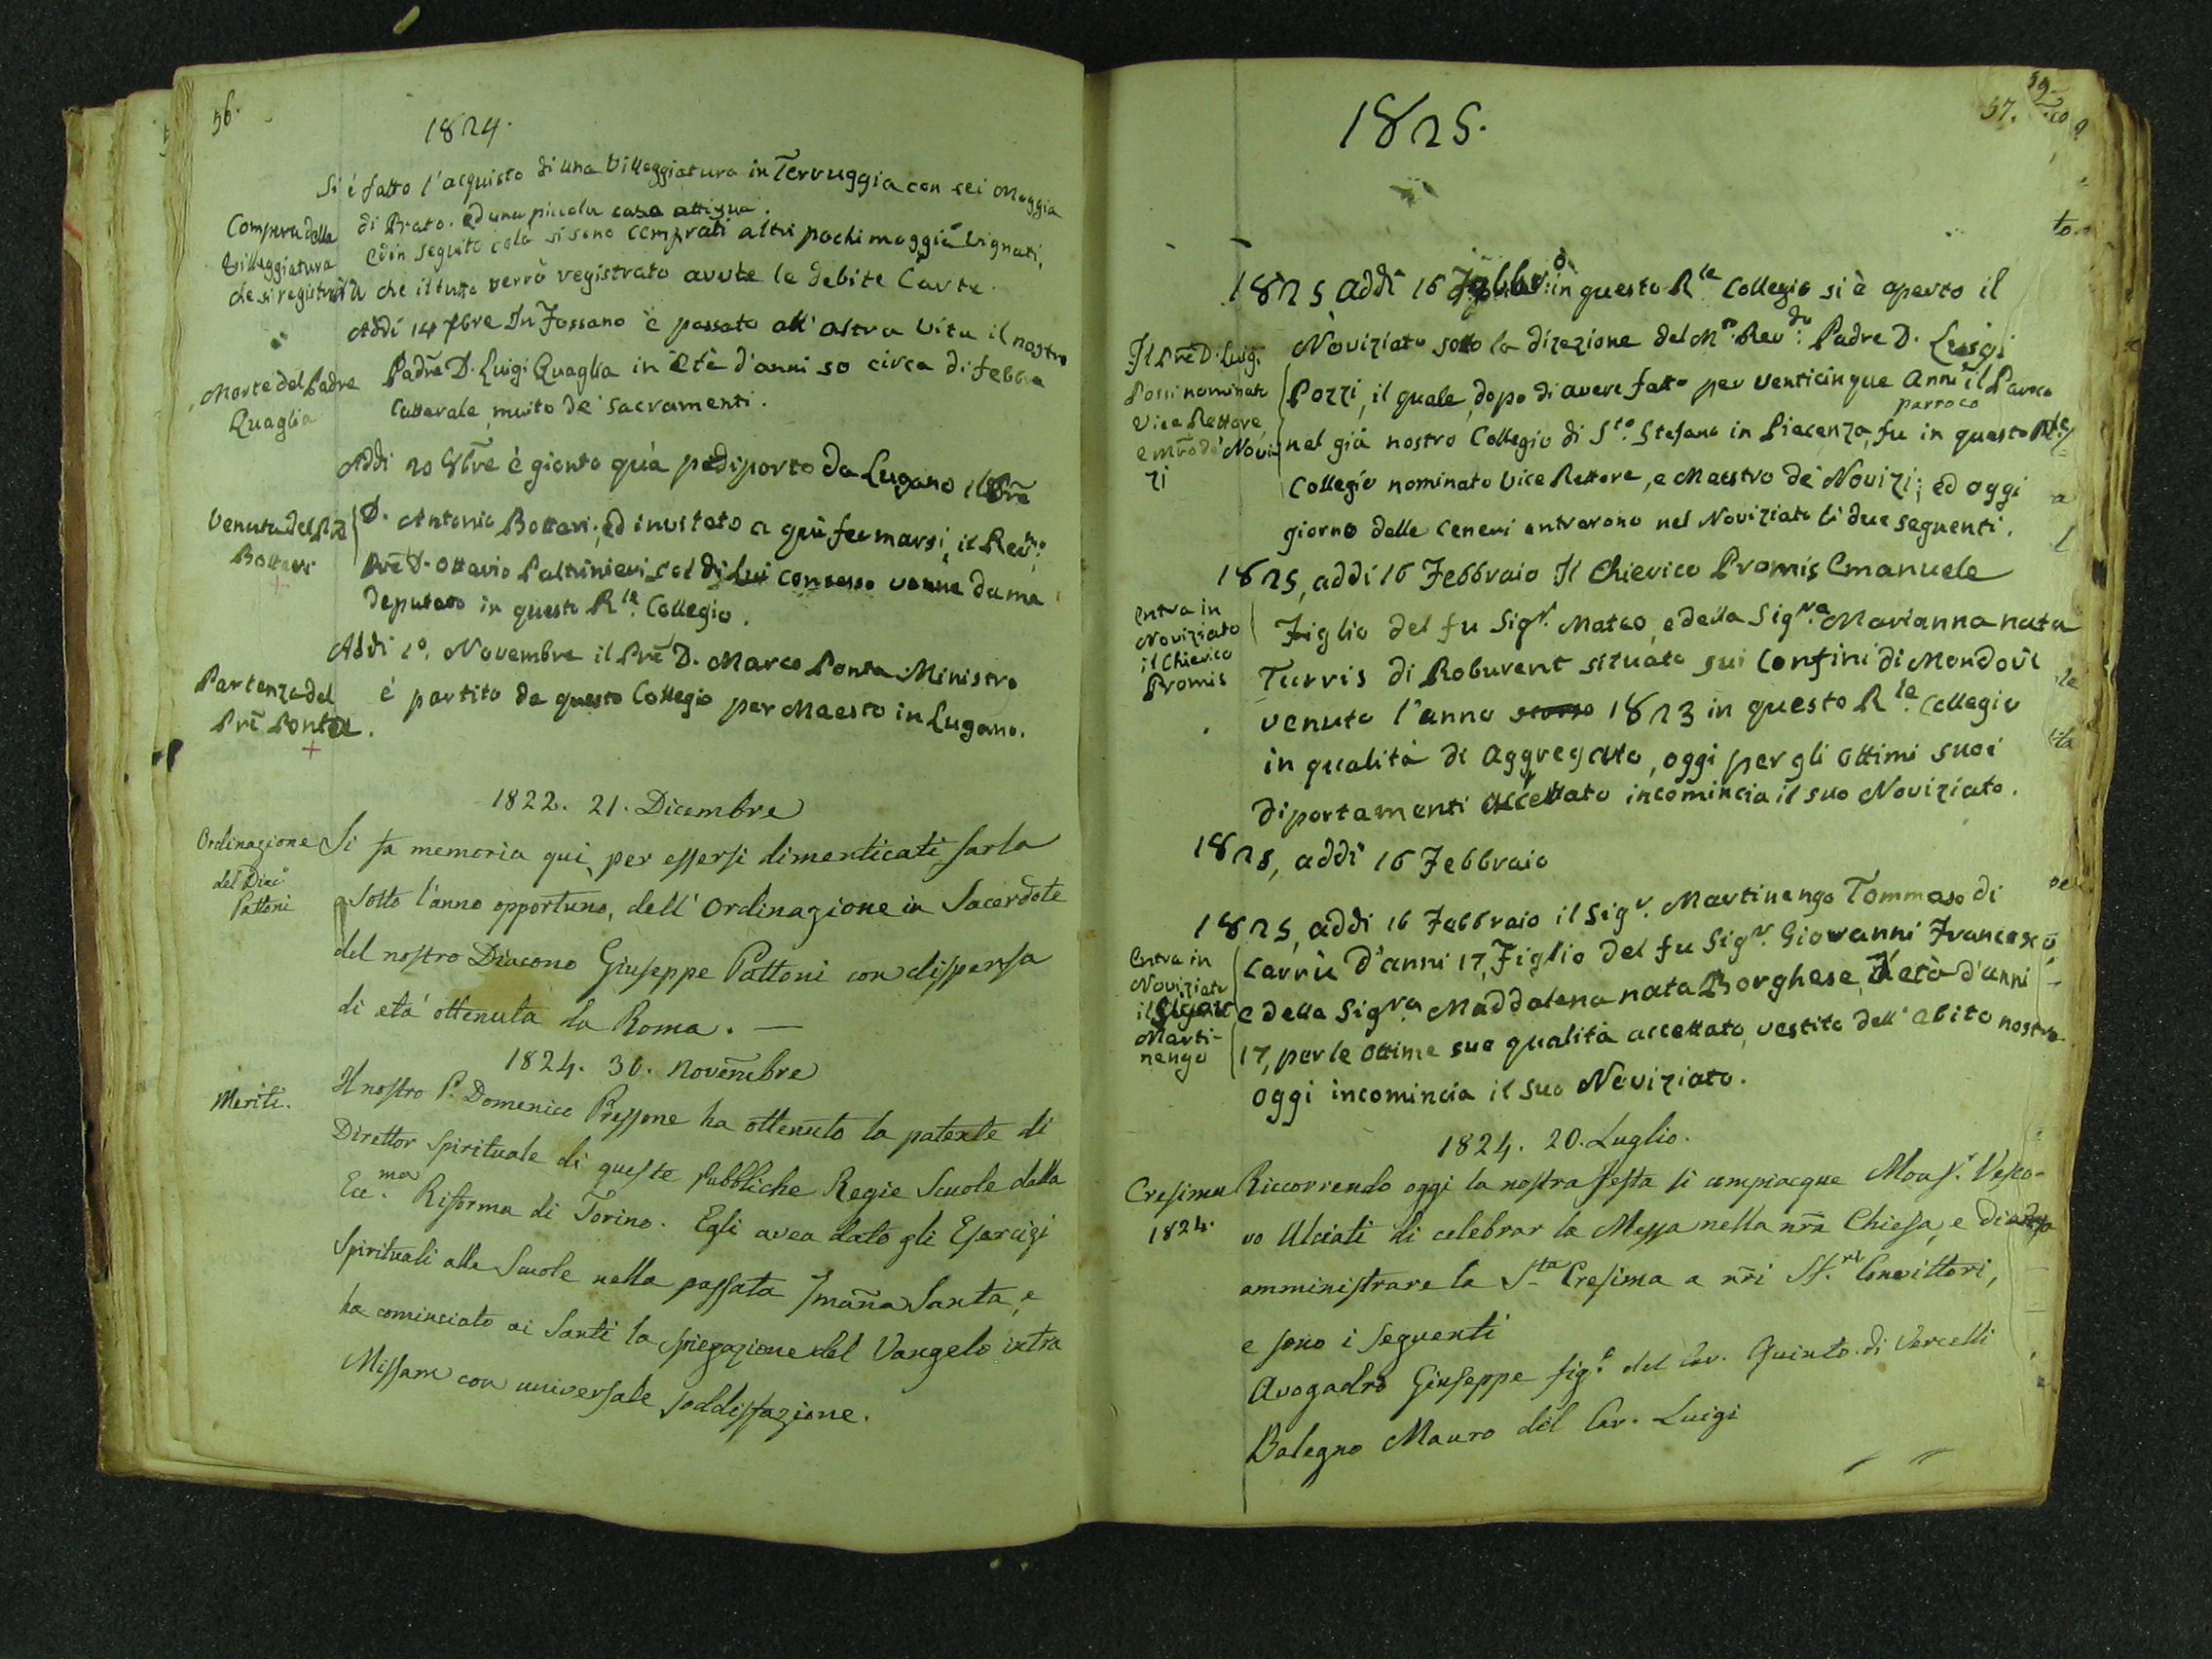 56.
1824.
Si è fatto l'acquisto di una Villeggiatura in Terruggia con sei Moggia
di Prato. ed una piccola casa attigua.
Compera della
Villeggiatura
che si registrerà
ed in seguito colà si sono comprati altri pochi moggia vignati,
che il tutto verrà registrato avute le debite Carte.
Addi 14 7bre In Fossano è passato all'altra vita il nostro
Morte del Padre
Quaglia
Padre D. Luigi Quaglia in età d'anni 50 circa di febbre
Catterale, muito de' sacramenti.
Addi 20 8bre è gionto quà pediporto da Lugano il Prē
Venuta del Prē
Bottari
+
D. Antonio Bottari, ed invitato a quì fermarsi, il Rev.mo
Prē D. Ottavio Paltrinieri, col di Lui consenso venne da me
deputato in questo R.le Collegio.
Addi 1º. Novembre il Prē D. Marco Ponta Ministro
Partenza del
Prē Ponta.
+
è partito da questo Collegio per Maesto in Lugano.
1822. 21. Dicembre
Ordinazione
del Diac.o
Pattoni
Si fa memoria qui, per essersi dimenticati farla
sotto l'anno opportuno, dell'Ordinazione in Sacerdote
del nostro Diacono Giuseppe Pattoni con dispensa
di età ottenuta da Roma. —
1824. 30. Novembre
Meriti.
Il nostro P. Domenico Pressone ha ottenuto la patente di
Direttor Spirituale di queste Pubbliche Regie Scuole dalla
Ecc.ma Riforma di Torino. Egli avea dato gli Esercizi
Spirituali alle Scuole nella passata Smāna Santa, e
ha cominciato ai Santi la spiegazione del Vangelo intra
Missam con universale soddisfazione.
1825.
57.
59
1825, addi 16 Febbr.o in questo R.le Collegio si è aperto il
Il Prē D. Luigi
Possi nominato
Vice Rettore,
e Mrō de' Novi
zi
Noviziato sotto la direzione del M.o Rev.do Padre D. Luigi
Pozzi, il quale, dopo di avere fatto per venticinque Anni il Parroco
parroco
nel già nostro Collegio di S.to Stefano in Piacenza, fu in questo R.le
Collegio nominato Vice Rettore, e Maestro de' Novizi; ed oggi
giorno delle Ceneri entrarono nel Noviziato li due seguenti.
1825, addi 16 Febbraio Il Chierico Promis Emanuele
Entra in
Noviziato
il Chierico
Promis
Figlio del fu Sig.r Matteo, e della Sig.ra Marianna nata
Turris di Roburent situato sui Confini di Mondovì
venuto l'anno scorso 1823 in questo R.le Collegio
in qualità di Aggregato, oggi per gli ottimi suoi
diportamenti accettato incomincia il suo Noviziato.
1825, addi 16 Febbraio
1825, addi 16 Febbraio il Sig.r Martinengo Tommaso di
Entra in
Noviziato
il
Marti-
nengo
Carrù d'anni 17, Figlio del fu Sig.r Giovanni Francesco,
e della Sig.ra Maddalena nata Borghese, d'età d'anni
17, per le ottime sue qualità accettato, vestito dell'abito nostro
oggi incomincia il suo Noviziato.
1824. 20. Luglio.
Cresima
1824.
Riccorrendo oggi la nostra festa si compiacque Mons.r Vesco-
vo Alciati di celebrar la Messa nella nrā Chiesa, e di
amministrare la S.ta Cresima a nrī SS.ri Convittori,
e sono i seguenti
Avogadro Giuseppe fig.o del Cav. Quinto di Vercelli
Balegno Mauro del Cav. Luigi